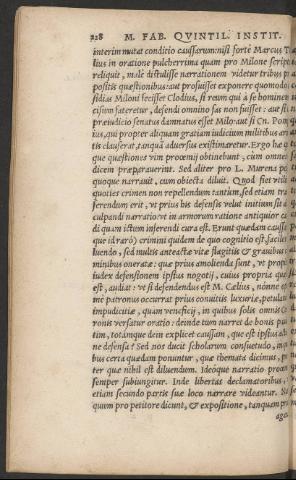 228 M. FAB. QVINTIL. INSTIT.
interim mutat conditio caussarum: nisi fortè Marcus Tul
lius in oratione pulcherrima quam pro Milone script
reliquit, malè distulisse narrationem videtur tribus pr
positis quæstionibus: aut profuisset exponere quomodo
sidias Miloni fecisset Clodius, si reum qui à se hominem
cisum fateretur, defendi omnino fas non fuisset: aut si
præiudicio senatus damnatus esset Milo: aut si Cn. Pom
ius, qui propter aliquam gratiam iudicium militibus ar
tis clauserat, tanquã aduersus existimaretur. Ergo hæ q
que quæstiones vim procemij obtinebunt, cùm omnes
dicem præparauerint. Sed aliter pro L. Murena po
quoque narrauit, cum obiecta diluit. Quod fiet vtili
quoties crimen non repellendum tantùm, sed etiam tra
ferendum erit, vt prius his defensis velut initium sit a
culpandi narratio: vt in armorum ratione antiquior ca
di quam ictum inferendi cura est. Erunt quædam caussæ
que id rarò) crimini quidem de quo cognitio est, faciles
luendo, sed multis anteactæ vitæ flagitiis & grauibus
minibus oneratæ: quæ prius amolienda sunt, vt prop
iudex defensionem ipsius negotij, cuius propria quæ
est, audiat: vt si defendendus est M. Cælius, nónne op
mè patronus occurrat prius conuitiis luxuriæ, petulan
impudicitiæ, quàm veneficij, in quibus solis omnis Ci
ronis versatur oratio: deinde tum narret de bonis pa
tim, totamque dein explicet caussam, quæ est ipsius ab
ne defensa? Sed nos ducit scholarum consuetudo, in qu
bus certa quædam ponuntur, quæ themata dicimus, pr
ter quæ nihil est diluendum. Ideóque narratio proœm
semper subiungitur. Inde libertas declamatoribus, v
etiam secundo partis suæ loco narrare videantur. Na
quum pro petitore dicunt, & expositione, tanquam pri
agan